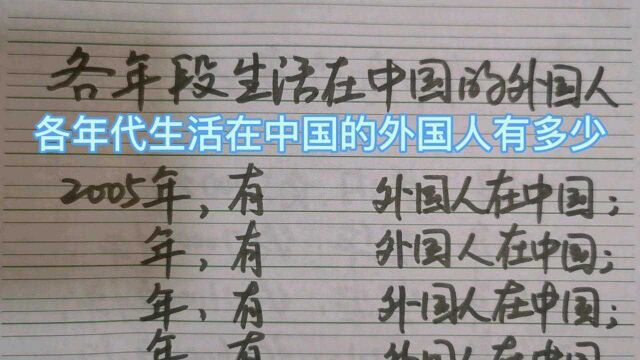 各年段生活在中国的外国人
各年代生活在中国的外国人有多少
2005年，有 外国人在中国；
年，有 外国人在中国；
年，有 外国人在中国；
年，有 外国人在中国